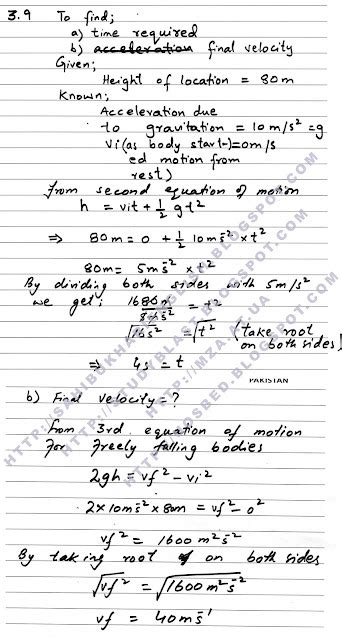 3.9 To find;
a) time required
b) acceleration final velocity
Given;
Height of location = 80m
Known;
Acceleration due
to gravitation = 10m/s² = g
Vi (as body start- = 0m/s
ed motion from
rest)
From second equation of motion
h = vit + 1/2 gt²
⇒ 80m = 0 + 1/2 10ms⁻² × t²
80m = 5ms⁻² × t²
By dividing both sides with 5m/s²
we get;
= t2
√16s² = √t² (take root
on both sides)
⇒ 4s = t
PAKISTAN
b) Final velocity = ?
From 3rd equation of motion
For freely falling bodies
2gh = vf² - vi²
2×10ms⁻² × 80m = vf² - 0²
vf² = 1600 m²s⁻²
By taking root on both sides
√vf² = √1600m²s⁻²
vf = 40ms⁻¹